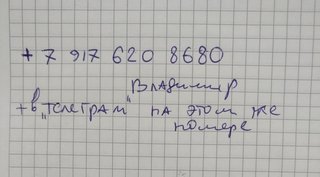 + 7 917 620 8680
Владимир
+ в "телеграм" на этом же
номере